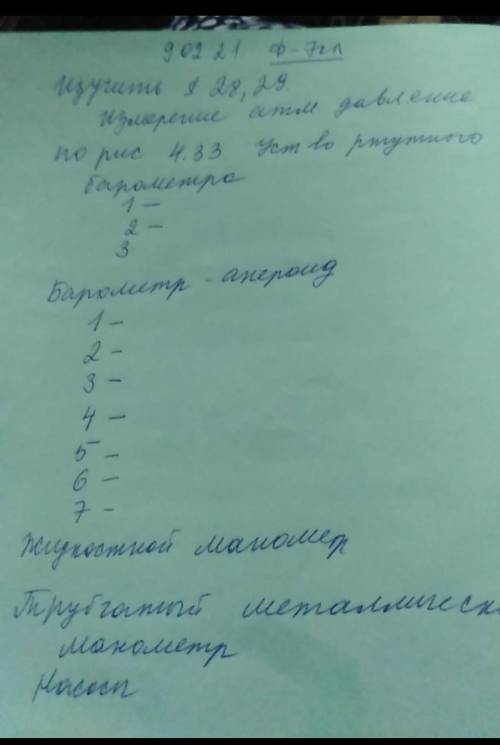 9 02 21 Ф-7кл
Изучить § 28, 29.
Измерение атм давление
по рис 4.33 Уст во ртутного
барометра
1 -
2 -
3
Барометр - анероид
1 -
2 -
3 -
4 -
5 -
6 -
7 -
Жидкостной маномер
Трубчатый металлическ
манометр
Насосы